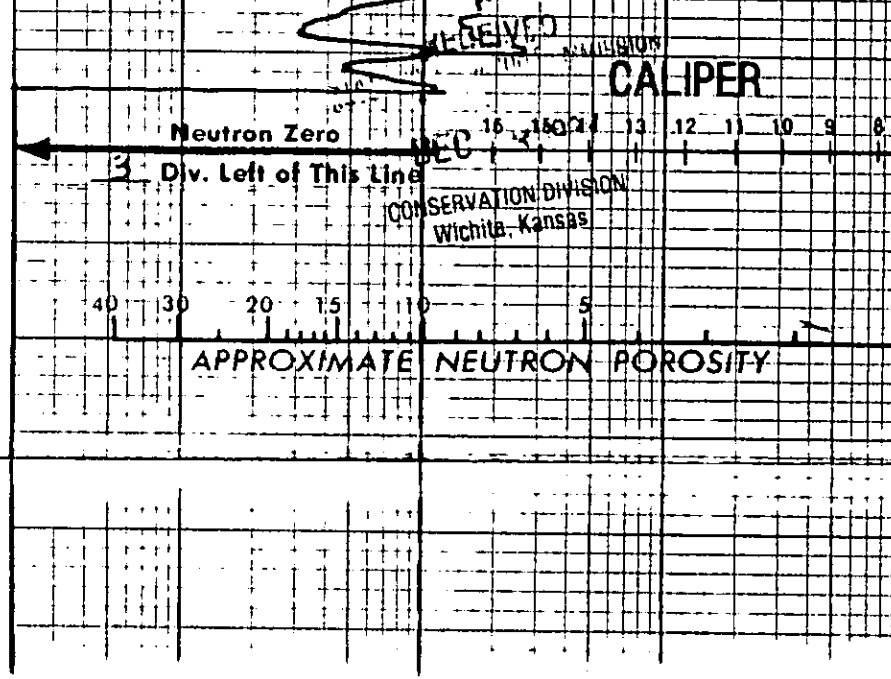 RECEIVED
CALIPER
Neutron Zero
3 Div. Left of This Line
DEC
16 15 14 13 12 11 10 9 8
CONSERVATION DIVISION
Wichita, Kansas
40 30 20 15 10 5
APPROXIMATE NEUTRON POROSITY